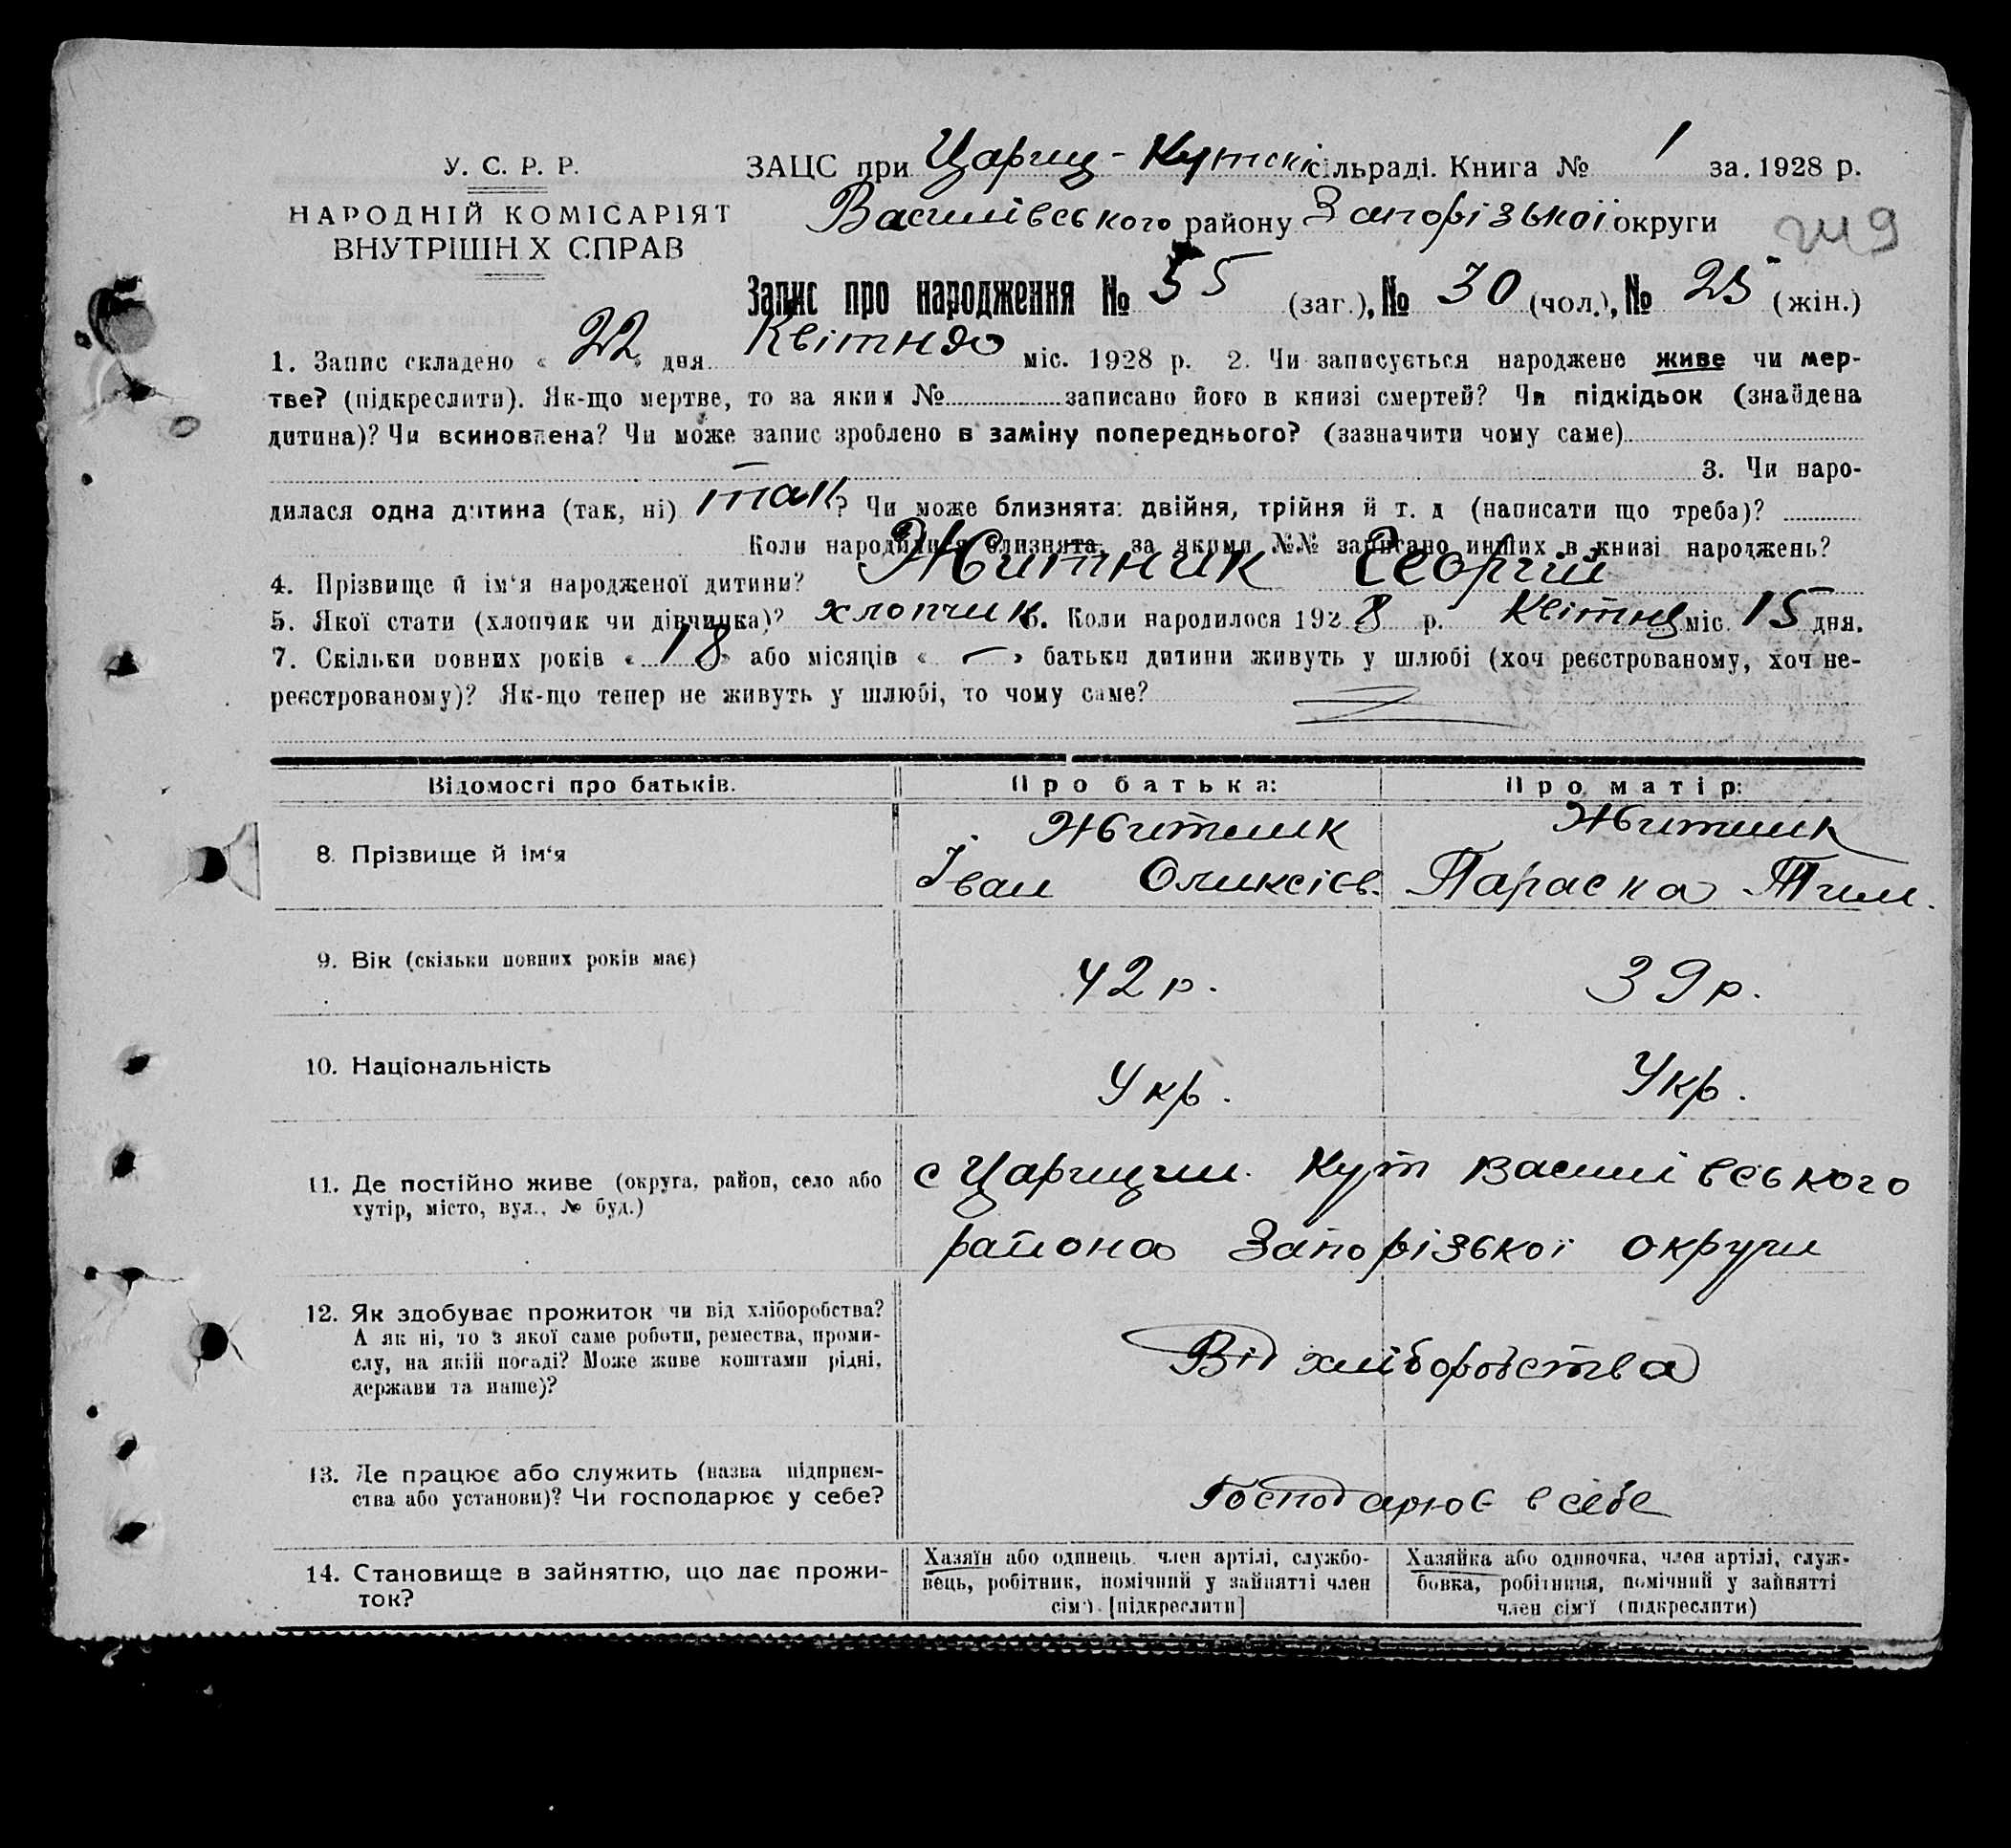 У. С. Р. Р.
НАРОДНІЙ КОМІСАРІЯТ
ВНУТРІШН Х СПРАВ
ЗАЦС при Цариц-Кутскі сільраді. Книга № 1 за 1928 р.
Василівського району Запорізької округи
Запис про народження № 55 (заг.), № 30 (чол.), № 25 (жін.)
1. Запис складено « 22 » дня Квітндо міс. 1928 р. 2. Чи записується народжене живе чи мер-
тве? (підкреслити). Як-що мертве, то за яким № записано його в книзі смертей? Чи підкідьок (знайдена
дитина)? Чи всиновлена? Чи може запис зроблено в заміну попереднього? (зазначити чому саме)
3. Чи наро-
дилася одна дитина (так, ні) так? Чи може близнята: двійня, трійня й т. д (написати що треба)?
Коли народилися близнята, за якими №№ записано инших в книзі народжень?
4. Прізвище й ім‘я народженої дитини? Житник Георгій
5. Якої стати (хлопчик чи дівчинка)? хлопчик 6. Коли народилося 1928 р. Квітня міс. 15 дня.
7. Скільки повних років « 18 » або місяців « — » батьки дитини живуть у шлюбі (хоч реєстрованому, хоч не-
реєстрованому)? Як-що тепер не живуть у шлюбі, то чому саме?
Відомості про батьків. Про батька: Про матір:
8. Прізвище й ім‘я
Житник
Іван Оликсієв.
Житник
Параска Тим.
9. Вік (скільки повних років має) 42 р. 39 р.
10. Національність Укр. Укр.
11. Де постійно живе (округа, район, село або
хутір, місто, вул., № буд.)
с Царицин. Кут Василівського
района Запорізької округи
12. Як здобуває прожиток чи від хліборобства?
А як ні, то з якої саме роботи, ремества, проми-
слу, на якій посаді? Може живе коштами рідні,
держави та инше)?
Від хліборобства
13. Де працює або служить (назва підприєм-
ства або установи)? Чи господарює у себе?
Господарює в себе
14. Становище в зайняттю, що дає прожи-
ток?
Хазяїн або одинець, член артілі, службо-
вець, робітник, помічний у зайнятті член
сім'ї. [підкреслити]
Хазяйка або одиночка, член артілі, служ-
бовка, робітниця, помічний у зайнятті
член сім'ї (підкреслити)